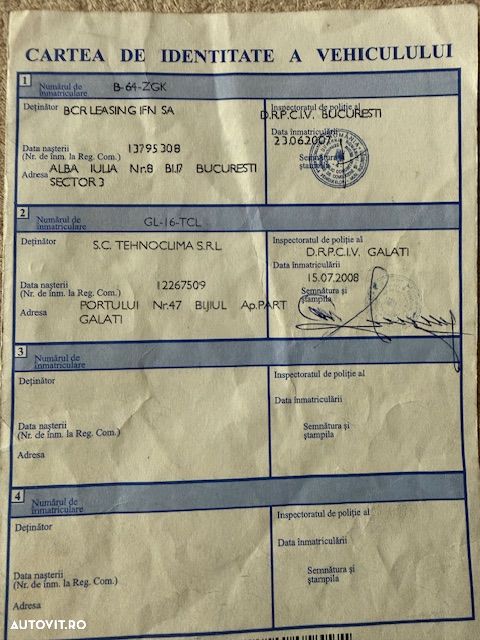 CARTEA DE IDENTITATE A VEHICULULUI
1
Numărul de înmatriculare B-64-ZGK
Deținător BCR LEASING IFN SA
Inspectoratul de poliție al D.R.P.C.I.V. BUCURESTI
Data înmatriculării 23.06.2007
Data nașterii (Nr. de înm. la Reg. Com.) 13795308
Semnătura și ștampila
Adresa ALBA IULIA Nr.8 Bl.I7 BUCURESTI
SECTOR 3
2
Numărul de înmatriculare GL-16-TCL
Deținător S.C. TEHNOCLIMA S.R.L.
Inspectoratul de poliție al D.R.P.C.I.V. GALATI
Data înmatriculării 15.07.2008
Data nașterii (Nr. de înm. la Reg. Com.) 12267509
Semnătura și ștampila
Adresa PORTULUI Nr.47 Ap.PART
GALATI
3
Numărul de înmatriculare
Deținător
Inspectoratul de poliție al
Data înmatriculării
Data nașterii
(Nr. de înm. la Reg. Com.)
Semnătura și
ștampila
Adresa
4
Numărul de înmatriculare
Deținător
Inspectoratul de poliție al
Data înmatriculării
Data nașterii
(Nr. de înm. la Reg. Com.)
Semnătura și
ștampila
Adresa
AUTOVIT.RO